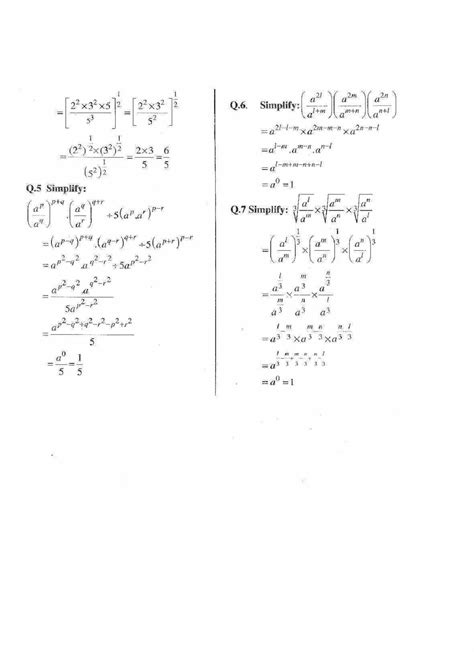 = [2² × 3² × 5 / 5³]^(1/2) = [2² × 3² / 5²]^(1/2)
= (2²)^(1/2) × (3²)^(1/2) / (5²)^(1/2) = 2×3 / 5 = 6/5
Q.5 Simplify:
(a^p / a^q)^(p+q) . (a^q / a^r)^(q+r) ÷ 5(a^p . a^r)^(p−r)
= (a^(p−q))^(p+q) . (a^(q−r))^(q+r) ÷ 5(a^(p+r))^(p−r)
= a^(p²−q²) . a^(q²−r²) ÷ 5a^(p²−r²)
= a^(p²−q²) . a^(q²−r²) / 5a^(p²−r²)
= a^(p²−q²+q²−r²−p²+r²) / 5
= a⁰/5 = 1/5
Q.6. Simplify: (a^(2l) / a^(l+m)) (a^(2m) / a^(m+n)) (a^(2n) / a^(n+l))
= a^(2l−l−m) × a^(2m−m−n) × a^(2n−n−l)
= a^(l−m) . a^(m−n) . a^(n−l)
= a^(l−m+m−n+n−l)
= a⁰ = 1
Q.7 Simplify: ∛(a^l / a^m) × ∛(a^m / a^n) × ∛(a^n / a^l)
= (a^l / a^m)^(1/3) × (a^m / a^n)^(1/3) × (a^n / a^l)^(1/3)
= a^(l/3) / a^(m/3) × a^(m/3) / a^(n/3) × a^(n/3) / a^(l/3)
= a^(l/3 − m/3) × a^(m/3 − n/3) × a^(n/3 − l/3)
= a^(l/3 − m/3 + m/3 − n/3 + n/3 − l/3)
= a⁰ = 1